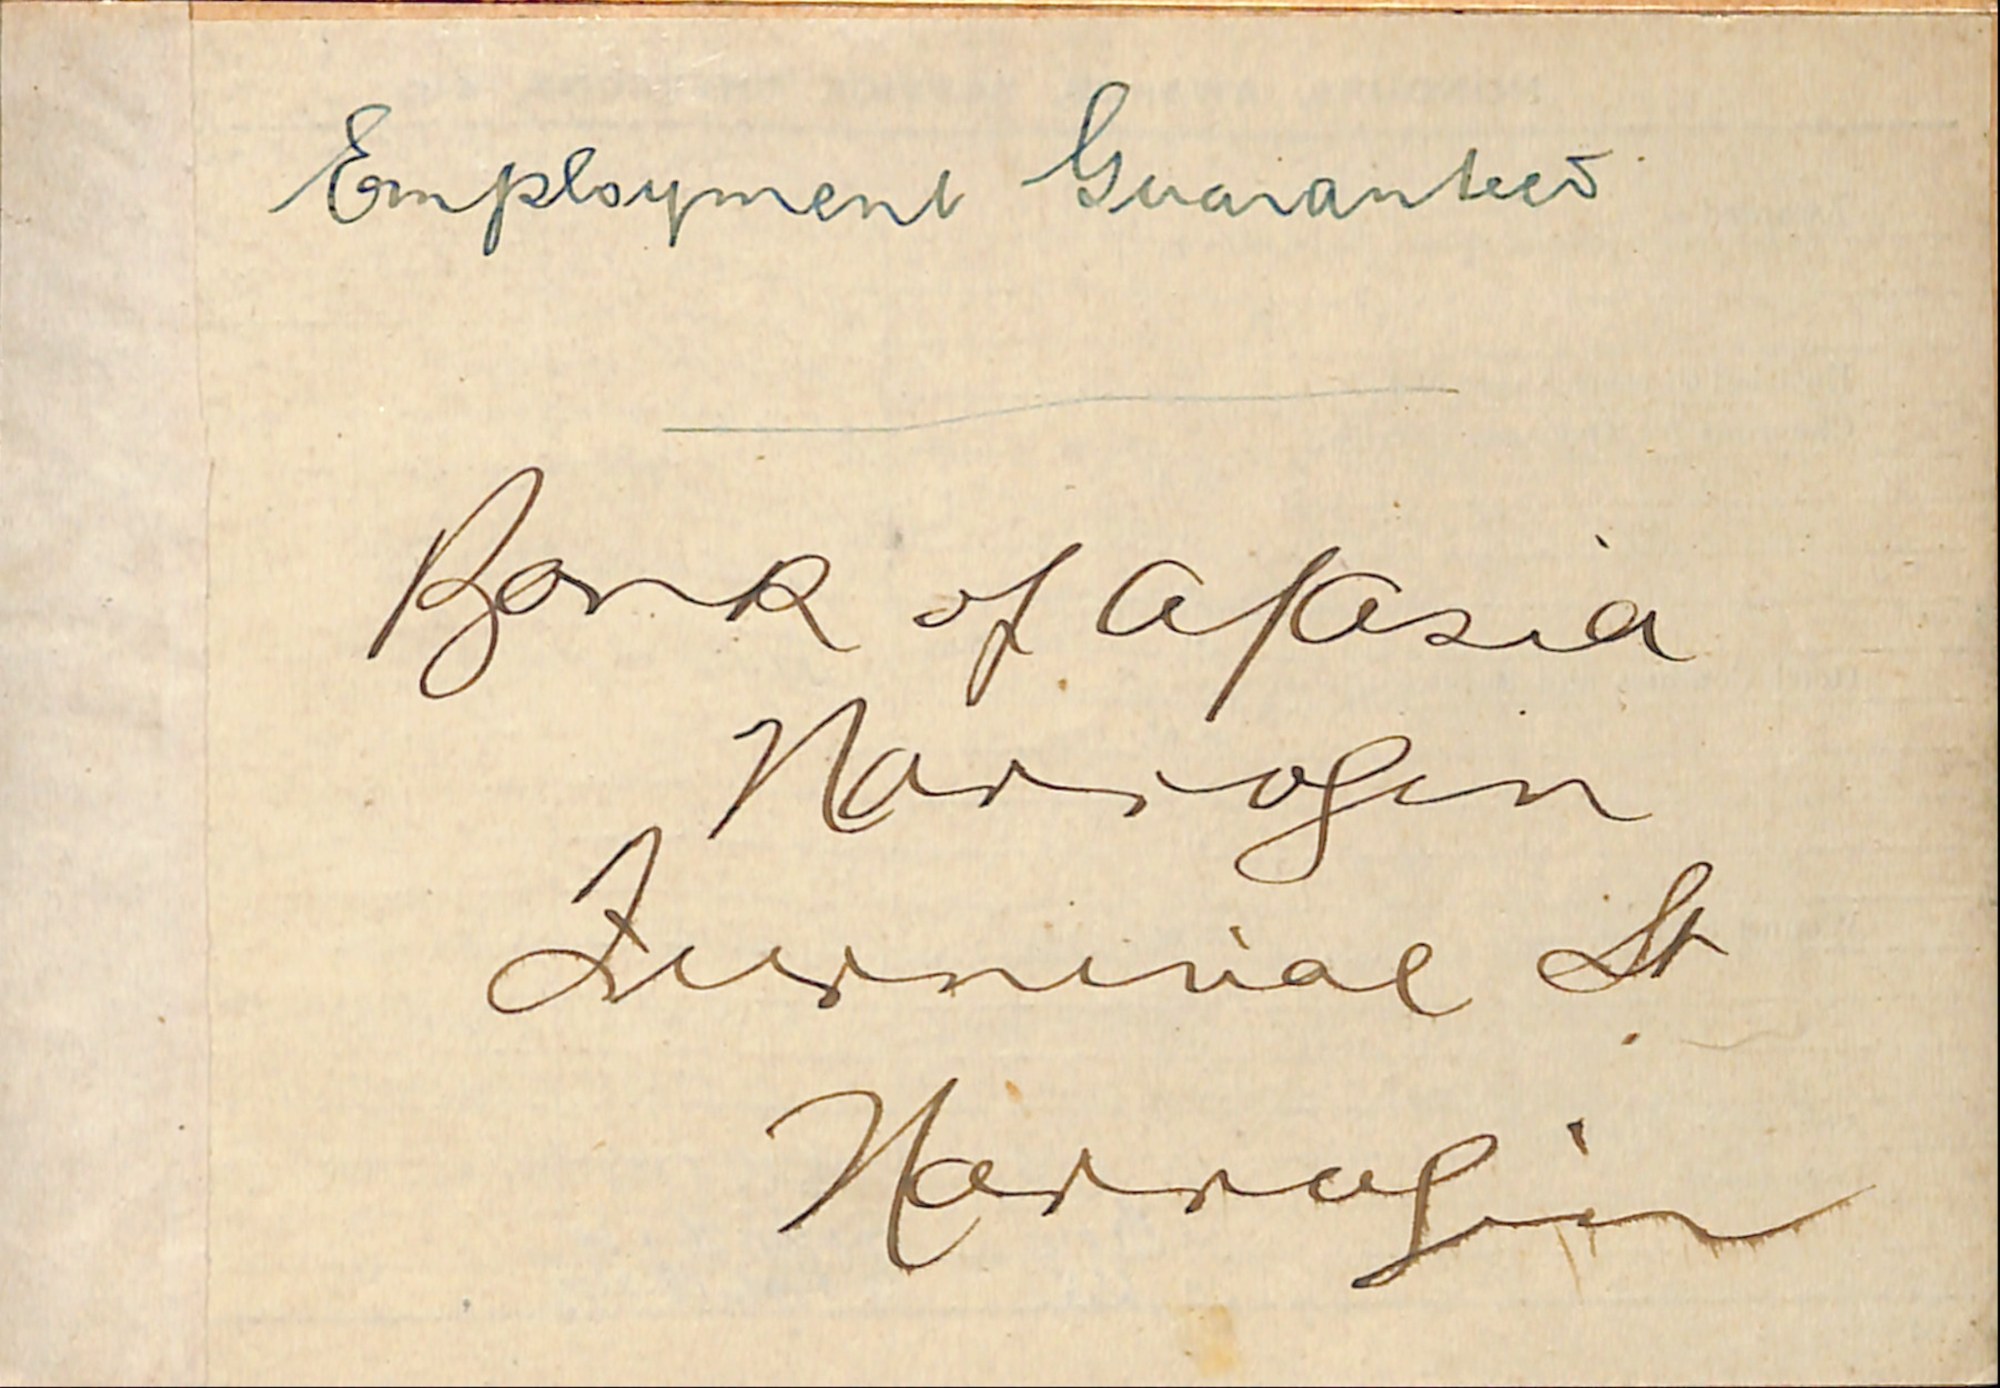 Employment Guaranteed
Bank of A/Asia
Narrogin
Furnival St
Narrogin